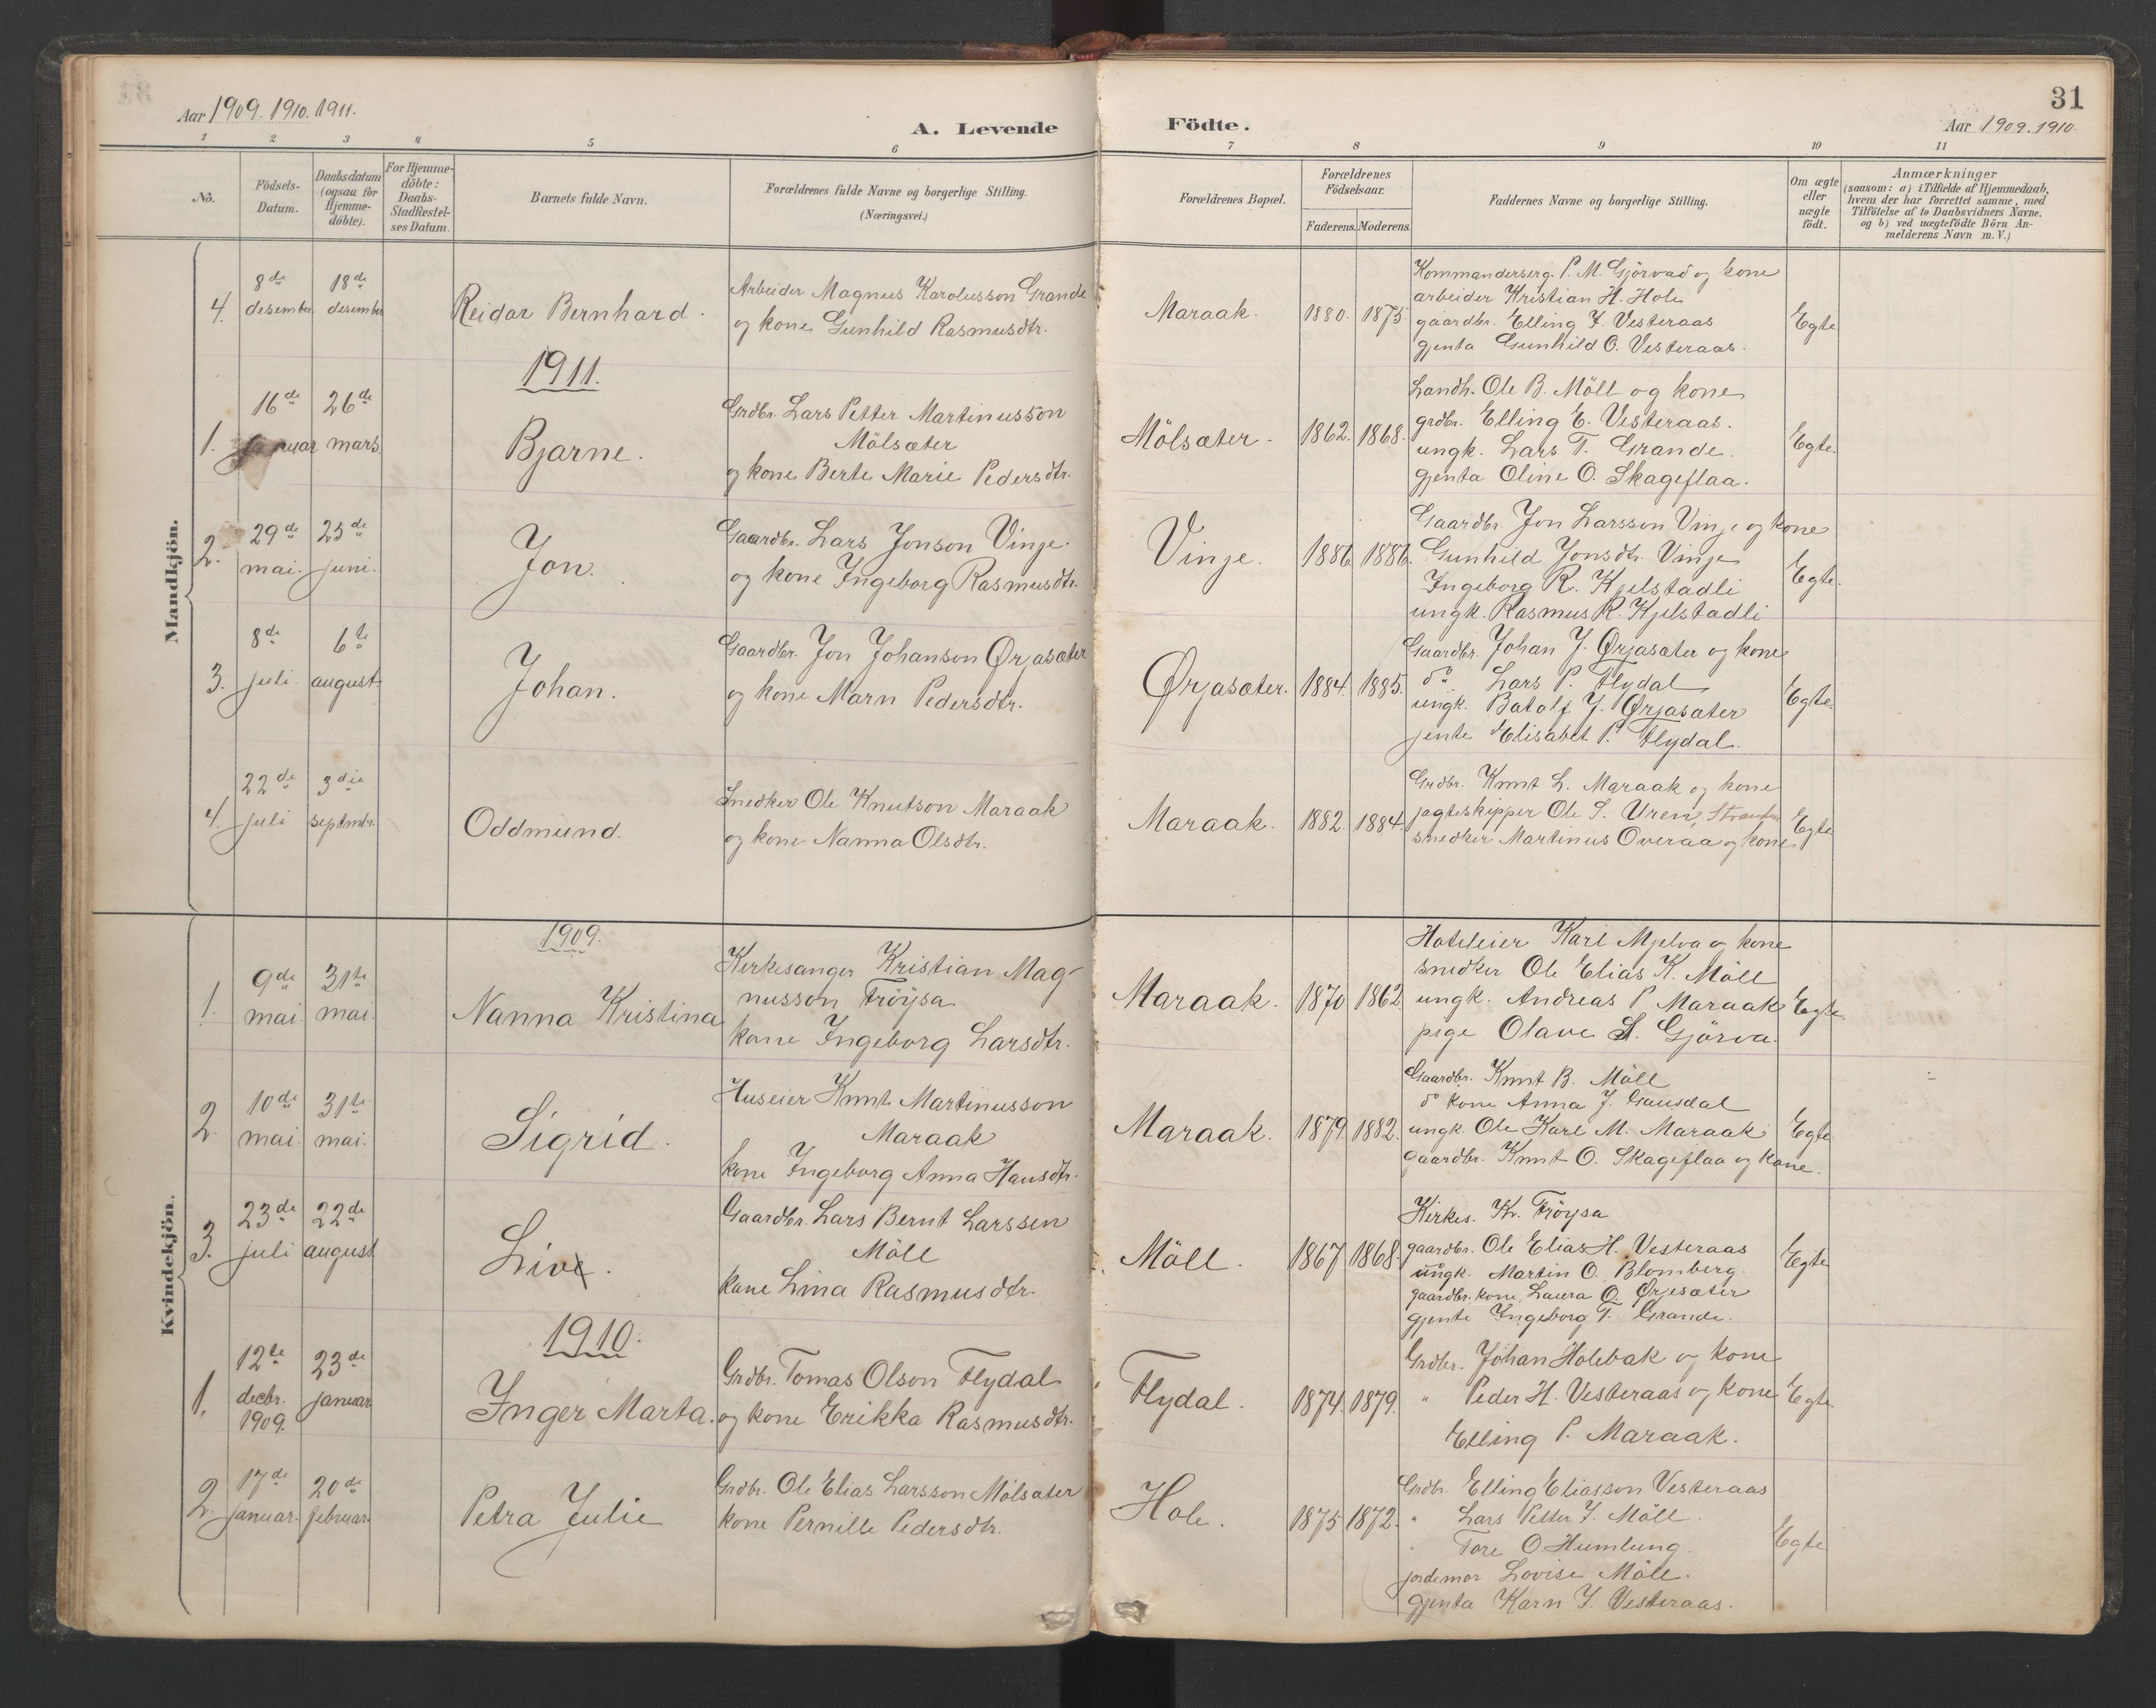 31
Aar 1909. 1910. 1911.
A. Levende Födte.
Aar 1909. 1910.
1 2 3 4 5 6 7 8 9 10 11
No.
Födsels-
Datum.
Daabsdatum
(ogsaa for
Hjemme-
döbte).
For Hjemme-
döbte:
Daabs-
Stadfæstel-
ses Datum.
Barnets fulde Navn.
Forældrenes fulde Navne og borgerlige Stilling.
(Næringsvei.)
Forældrenes Bopæl.
Forældrenes
Födselsaar.
Faderens. Moderens.
Faddernes Navne og borgerlige Stilling.
Om ægte
eller
uægte
födt.
Anmærkninger
(saasom: a) i Tilfælde af Hjemmedaab,
hvem der har forrettet samme, med
Tilföielse af to Daabsvidners Navne,
og b) ved uægtefödte Börn An-
melderens Navn m. V.)
Mandkjön.
4. 8de desember
18de desember
Reidar Bernhard.
Arbeider Magnus Karolusson Grande
og kone Gunhild Rasmusdtr.
Maraak. 1880. 1875
Kommanderserg. P. M. Gjörvad og kone
arbeider Kristian H. Hole
gaardbr. Elling I. Vesteraas
gjenta Gunhild O. Vesteraas.
Egte
1911.
1. 16de januar
26de mars.
Bjarne.
Grdbr. Lars Petter Martinusson
Mölsæter
og kone Berte Marie Pedersdtr.
Mölsæter. 1862. 1868.
Landh. Ole B. Möll og kone
grdbr. Elling E. Vesteraas.
ungk. Lars T. Grande.
gjenta Oline O. Skageflaa.
Egte.
2. 29de mai.
25de juni.
Jon.
Gaardbr. Lars Jonson Vinje.
og kone Ingeborg Rasmusdtr.
Vinje. 1886 1886.
Gaardbr. Jon Larsson Vinje og kone
Gunhild Jonsdtr. Vinje
Ingeborg R. Kjelstadli
ungk. Rasmus R. Kjelstadli
Egte.
3. 8de juli
6te august.
Johan.
Gaardbr. Jon Johanson Ørjasæter
og kone Marn Pedersdtr.
Ørjasæter. 1884. 1885.
Gaardbr. Johan J. Ørjasæter og kone
do Lars P. Flydal
ungk. Batolf J. Ørjasæter
jente Elisabet P. Flydal.
Egte.
4. 22de juli
3die septmbr.
Oddmund.
Snedker Ole Knutson Maraak
og kone Nanna Olsdtr.
Maraak. 1882. 1884.
Grdbr. Knut L. Maraak og kone
jagteskipper Ole S. Uren,
snedker Martinus Overaa og kone
Egte
Kvindekjön.
1909.
1. 9de mai.
31te mai.
Nanna Kristina
Kirkesanger Kristian Mag-
nusson Fröysa
kone Ingeborg Larsdtr.
Maraak. 1870 1862
Hoteleier Karl Mjelva og kone
snedker Ole Elias K. Möll
ungk. Andreas P Maraak
pige Olave S. Gjörva.
Egte.
2 10de mai.
31te mai.
Sigrid.
Huseier Knut Martinusson
Maraak
kone Ingeborg Anna Hansdtr.
Maraak. 1879. 1882.
Gaardbr. Knut B. Möll
do kone Anna J. Gausdal
ungk. Ole Karl M. Maraak
gaardbr. Knut O. Skageflaa og kone.
Egte
3. 23de juli
22de august
Live.
Gaardbr. Lars Bernt Larssen
Möll
kone Lina Rasmusdtr.
Möll. 1867 1868.
Kirkes. Kr. Fröysa
gaardbr. Ole Elias H. Vesteraas
ungk. Martin O. Blomberg.
gaardbr. kone, Laura O. Ørjesæter
gjente Ingeborg T. Grande.
Egte
1910.
1. 12te decbr. 1909.
23de januar
Inger Marta.
Grdbr. Tomas Olson Flydal
og kone Erikka Rasmusdtr.
Flydal. 1874. 1879.
Grdbr. Johan Holebak og kone
" Peder H. Vesteraas og kone
Elling P. Maraak.
Egte.
2. 17de januar.
20de februar.
Petra Julie
Grdbr. Ole Elias Larsson Mölsæter
kone Pernille Pedersdtr.
Hole. 1875 1872.
Grdbr. Elling Eliasson Vesteraas
" Lars Petter I. Möll.
" Tore O Humlung.
jordemor Lovise Möll.
gjenta Karn I. Vesteraas.
Egte